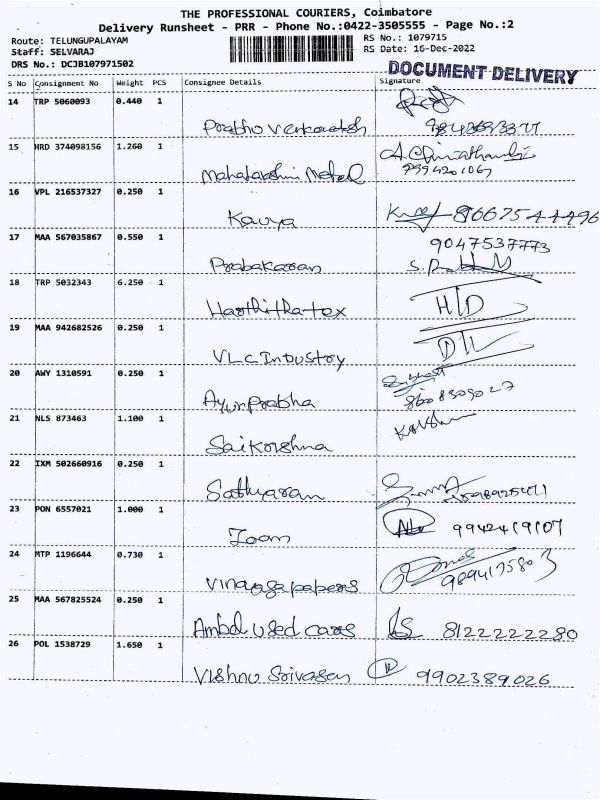 THE PROFESSIONAL COURIERS, Coimbatore
Delivery Runsheet - PRR - Phone No.:0422-3505555 - Page No.:2
Route: TELUNGUPALAYAM RS No.: 1079715
Staff: SELVARAJ RS Date: 16-Dec-2022
DRS No.: DCJB107971502 DOCUMENT DELIVERY
S No Consignment No Weight PCS Consignee Details Signature
14 TRP 5060093 0.440 1
Prabhu Venkatesh
15 HRD 374098156 1.260 1
Mahalakshmi Metal 7994201067
16 VPL 216537327 0.250 1
Kavya 8667544496
17 MAA 567035867 0.550 1 9047537773
Prabakaran
18 TRP 5032343 6.250 1
Harthitha tex H/D
19 MAA 942682526 0.250 1
VLC Industry
20 AWY 1310591 0.250 1
Ayurprabha
21 NLS 873463 1.100 1
Saikrishna
22 IXM 502660916 0.250 1
Sathyaran
23 PON 6557021 1.000 1
Joan 9942419107
24 MTP 1196644 0.730 1
Vinayaga papers 9894175803
25 MAA 567825524 0.250 1
Ambal used cars 8122222280
26 POL 1538729 1.650 1
Vishnu Srivasan 9902389026